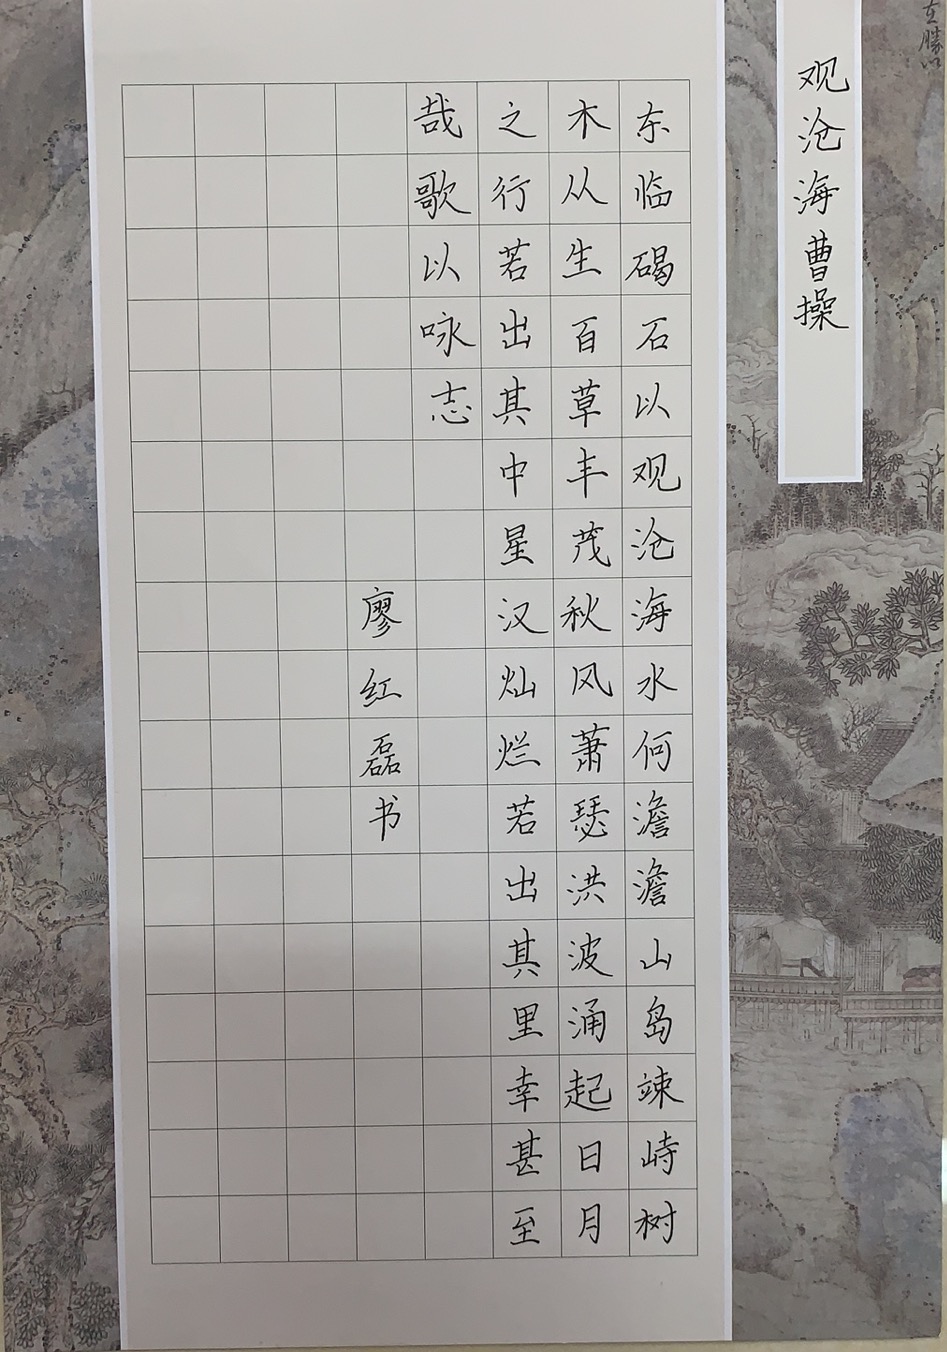 观沧海曹操
东临碣石以观沧海水何澹澹山岛竦峙树
木从生百草丰茂秋风萧瑟洪波涌起日月
之行若出其中星汉灿烂若出其里幸甚至
哉歌以咏志
廖红磊书